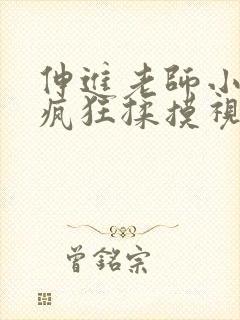 伸進老師小
疯狂揉摸視
曾銘宗